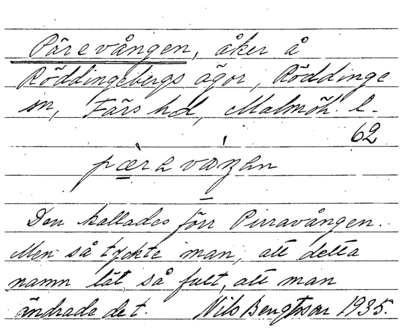 Pärevången, åker å
Röddingebergs ägor, Röddinge
sn, Färs hd, Malmöh. l.
62
pæ̀ra váŋen
Den kallades förr Pirravången.
Men så tyckte man, att detta
namn lät så fult, att man
ändrade det. Nils Bengtsson 1935.